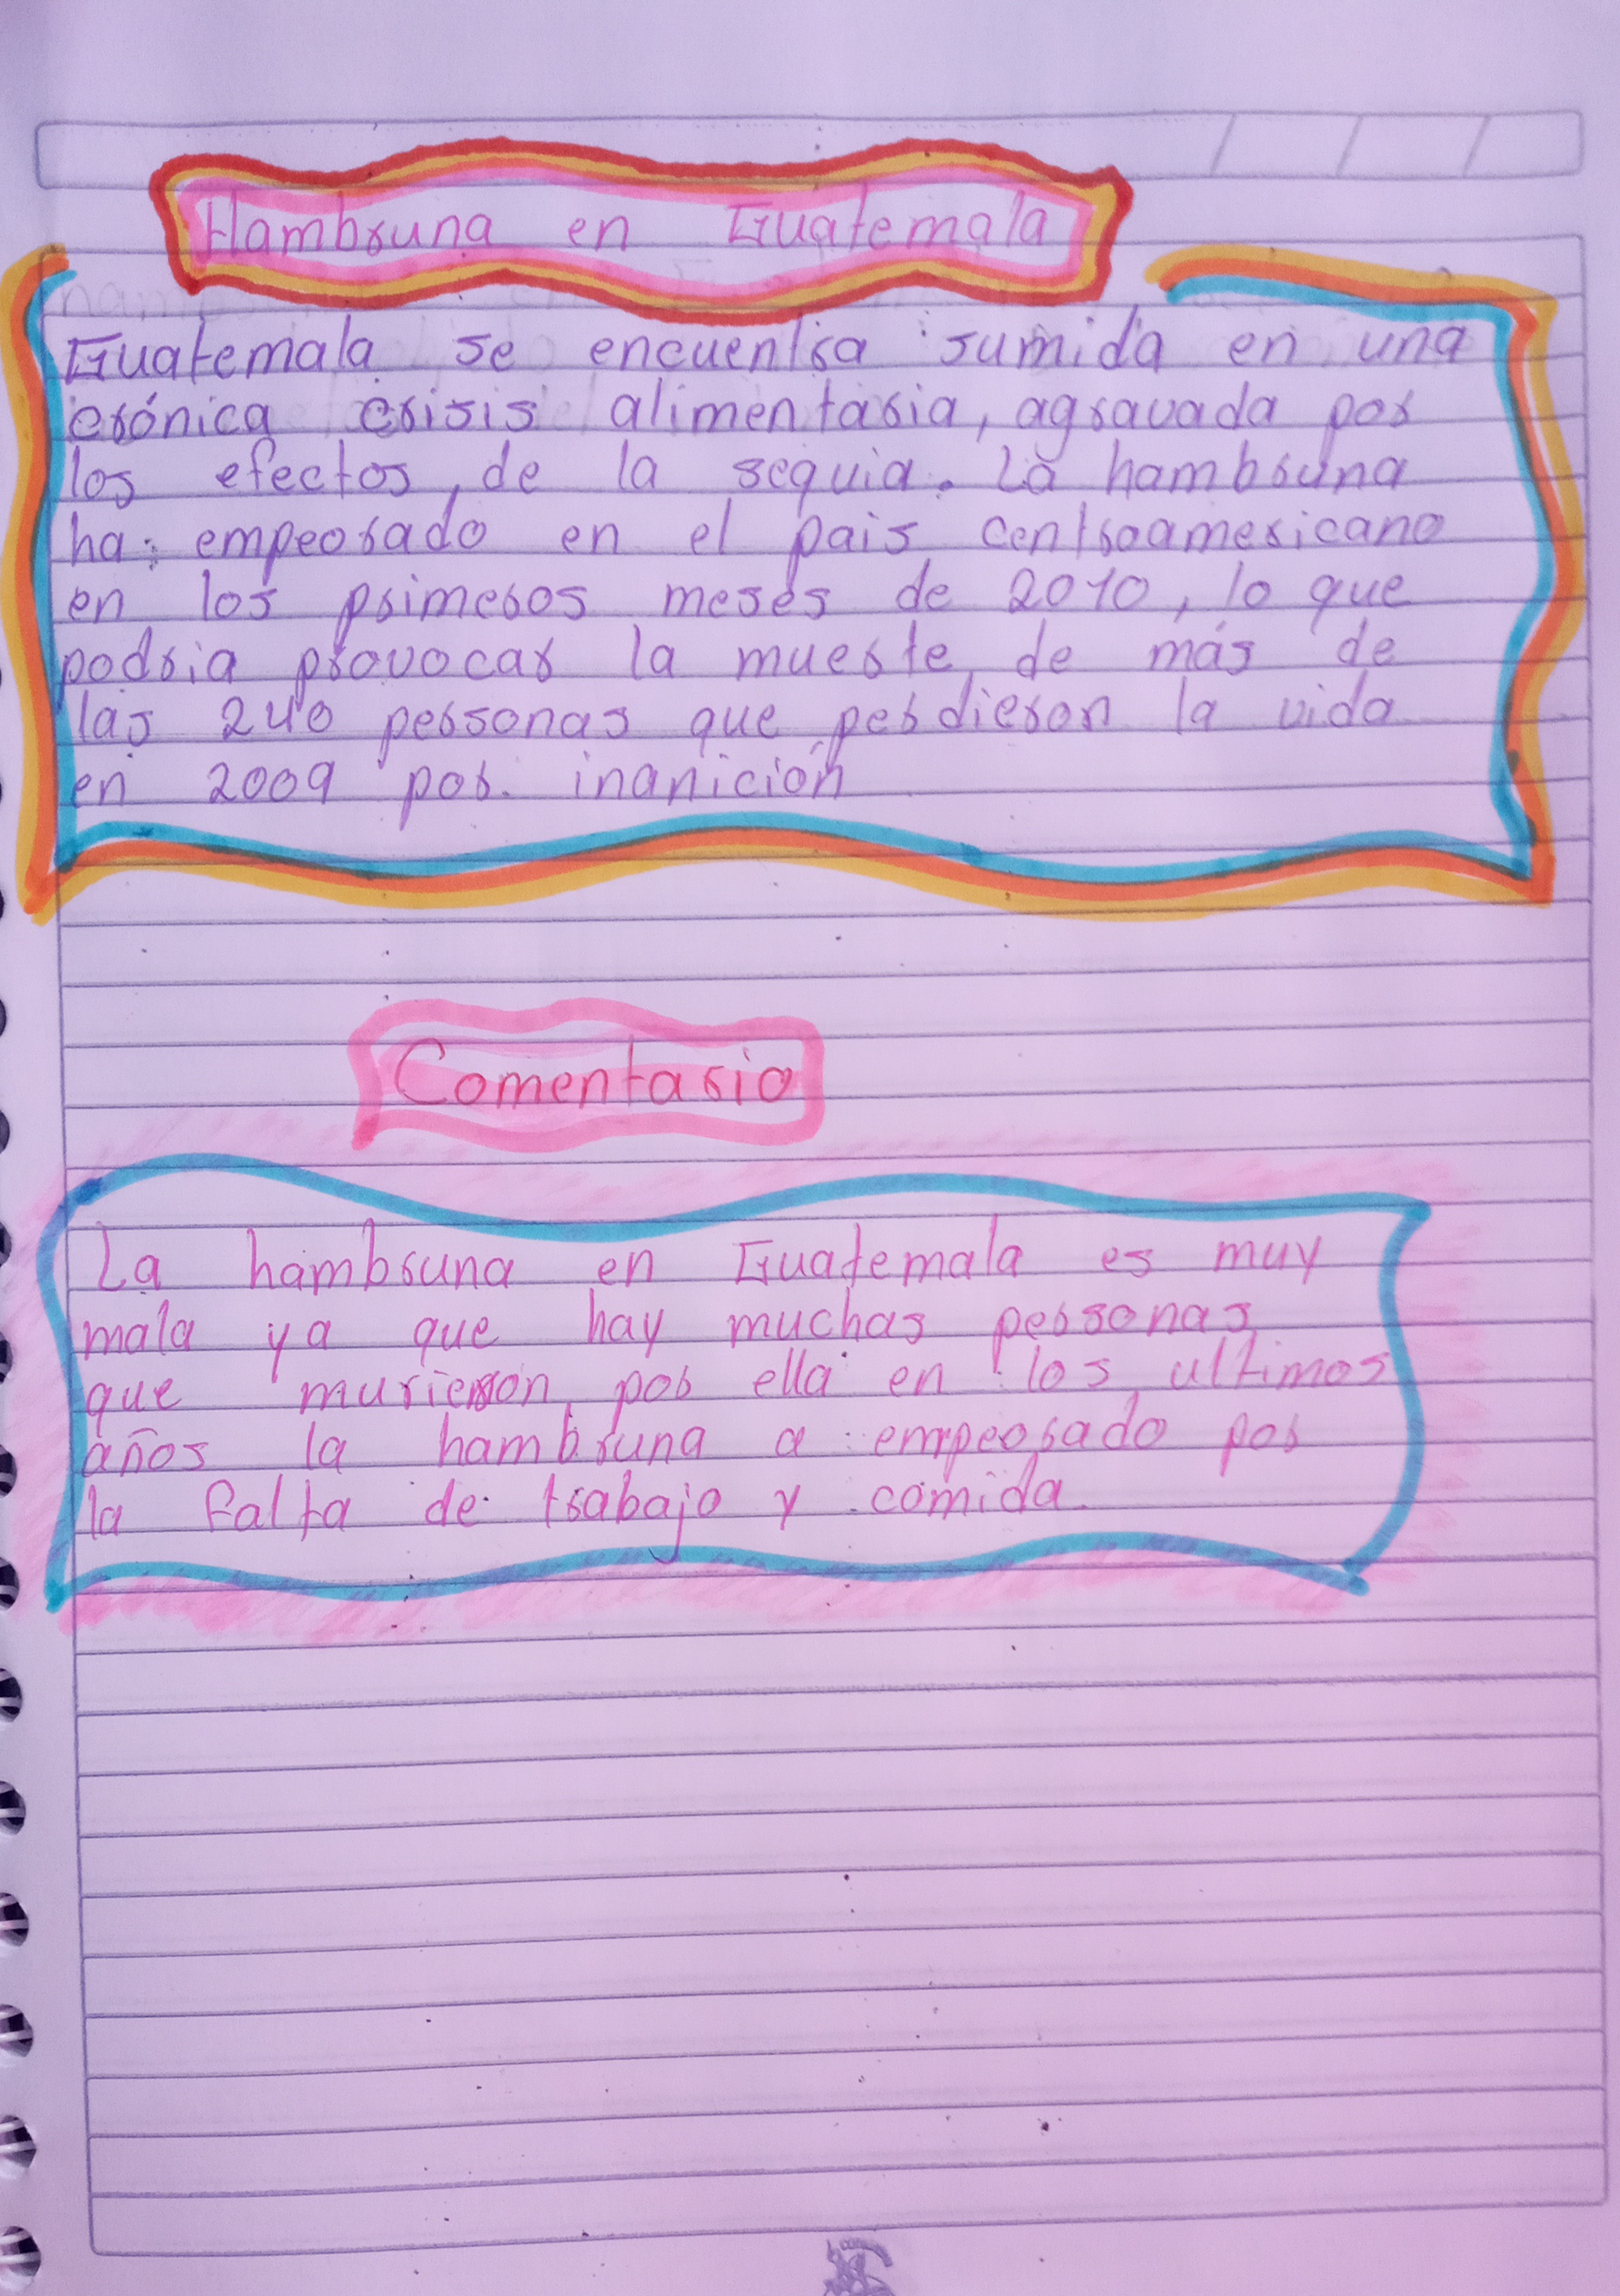 Hambruna en Guatemala
Guatemala se encuentra sumida en una
crónica crisis alimentaria, agravada por
los efectos de la sequia. La hambruna
ha empeorado en el pais centroamericano
en los primeros meses de 2010, lo que
podria provocar la muerte de más de
las 240 personas que perdieron la vida
en 2009 por inanición
Comentario
La hambruna en Guatemala es muy
mala ya que hay muchas personas
que murieron por ella en los ultimos
años la hambruna a empeorado por
la falta de trabajo y comida.